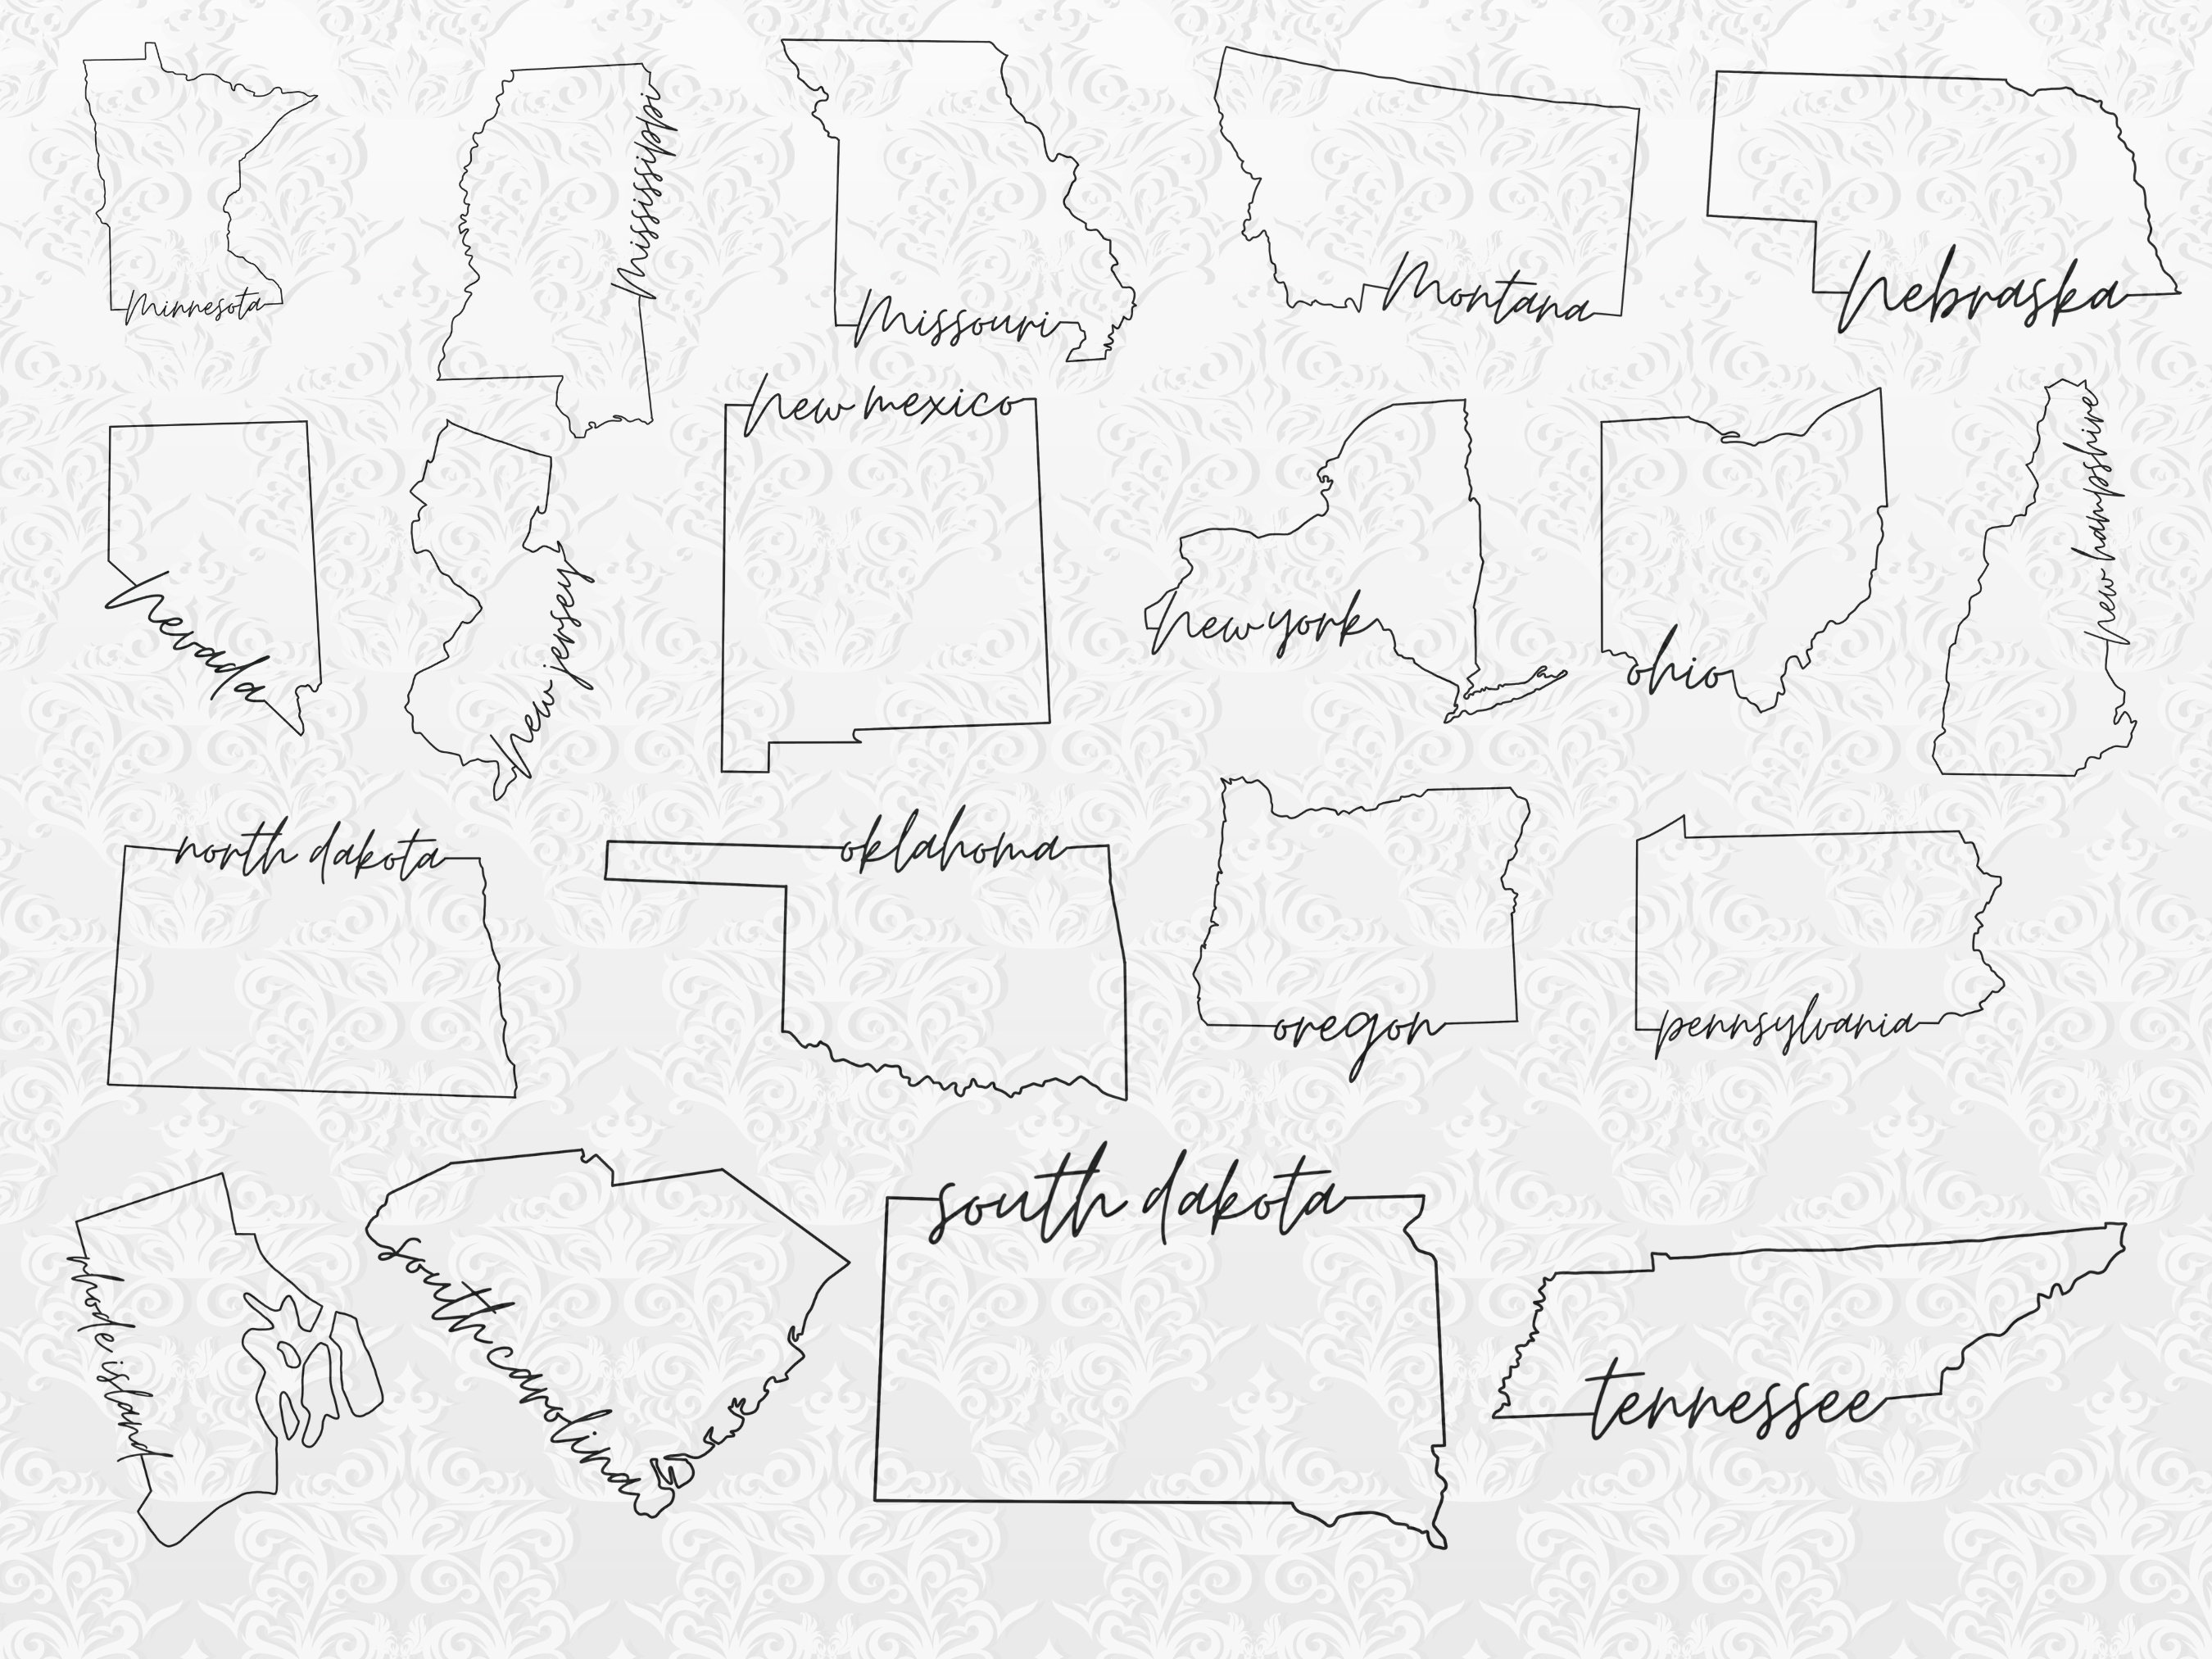 Minnesota
Mississippi
Missouri
Montana
Nebraska
nevada
new jersey
new mexico
new york
ohio
new hampshire
north dakota
oklahoma
oregon
pennsylvania
rhode island
south carolina
south dakota
tennessee